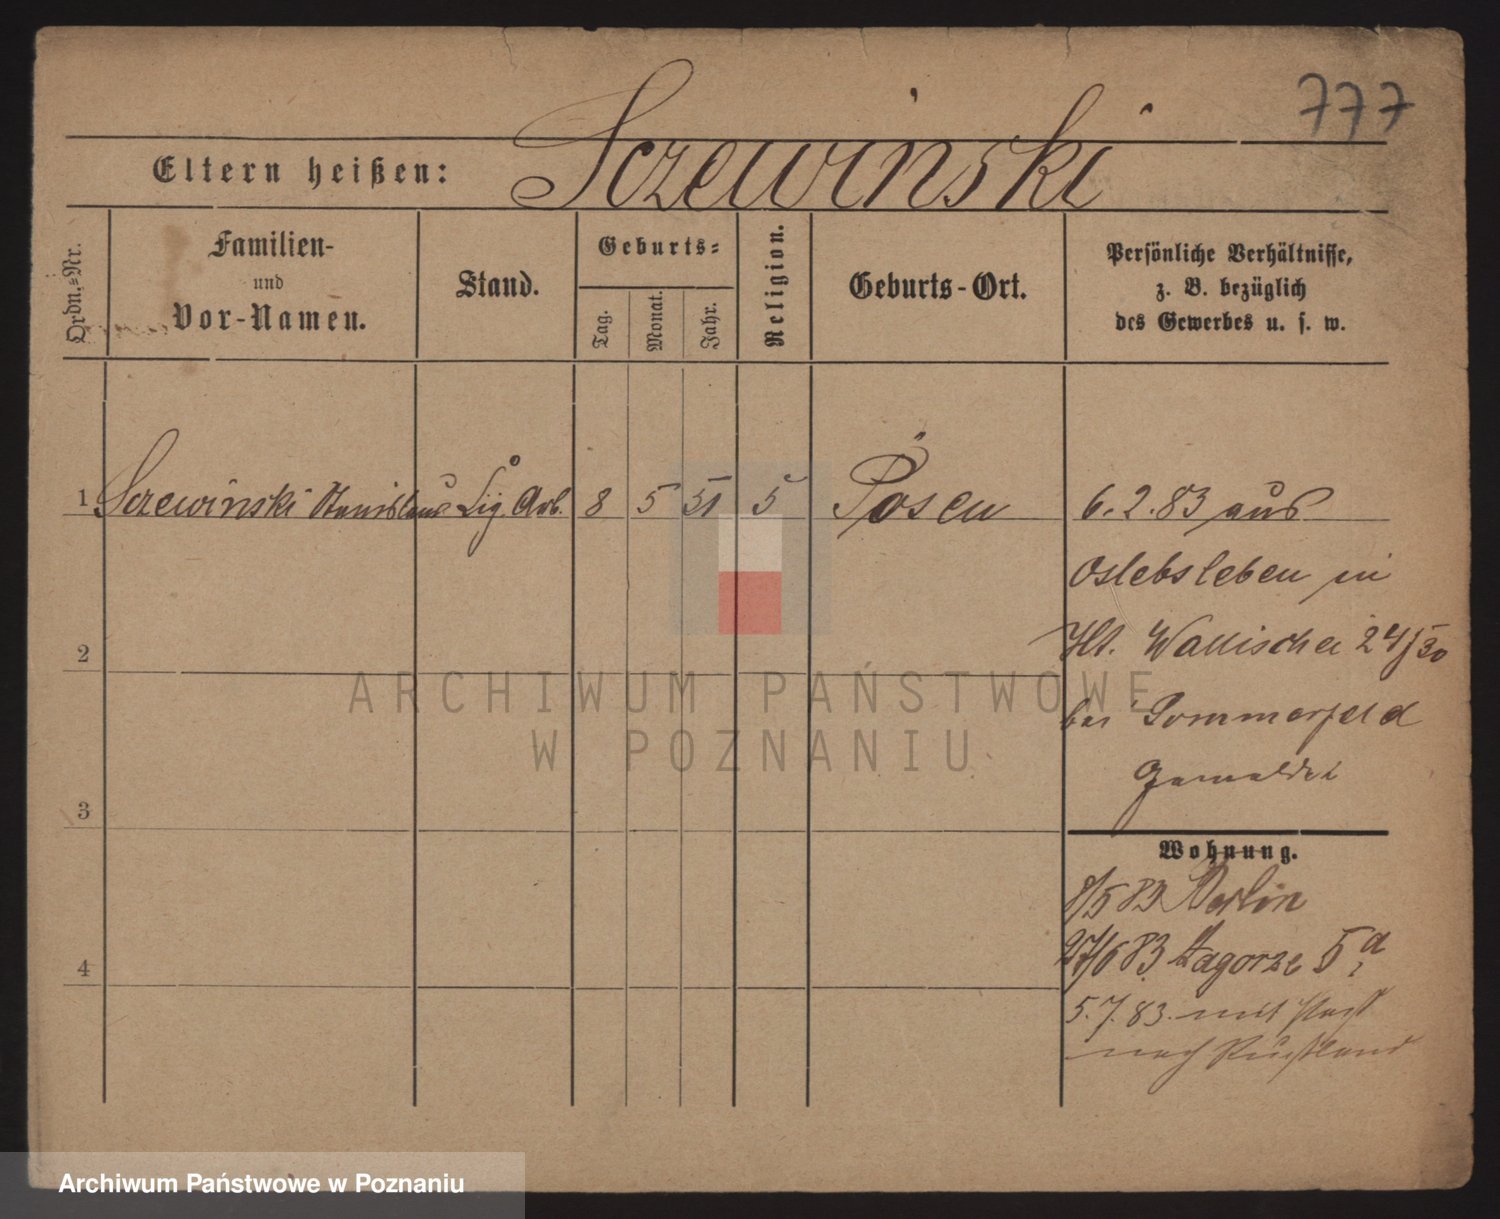 777
Eltern heißen: Sczewinski
Ordn.-Nr.
Familien-
und
Vor-Namen.
Stand.
Geburts-
Tag.
Monat.
Jahr.
Religion.
Geburts-Ort.
Persönliche Verhältnisse,
z. B. bezüglich
des Gewerbes u. s. w.
1 Sczewinski Stanislaus Cig. Arb. 8 5 51 5 Posen 6.2.83 aus
Oslebsleben in
Wallischei 24/30
bei Sommerfeld
gemeldet
2
3
4
Wohnung.
8/5 83 Berlin
27/6 83. Zagorze 5a
5.7.83. mit
nach Rußland
ARCHIWUM PAŃSTWOWE
W POZNANIU
Archiwum Państwowe w Poznaniu